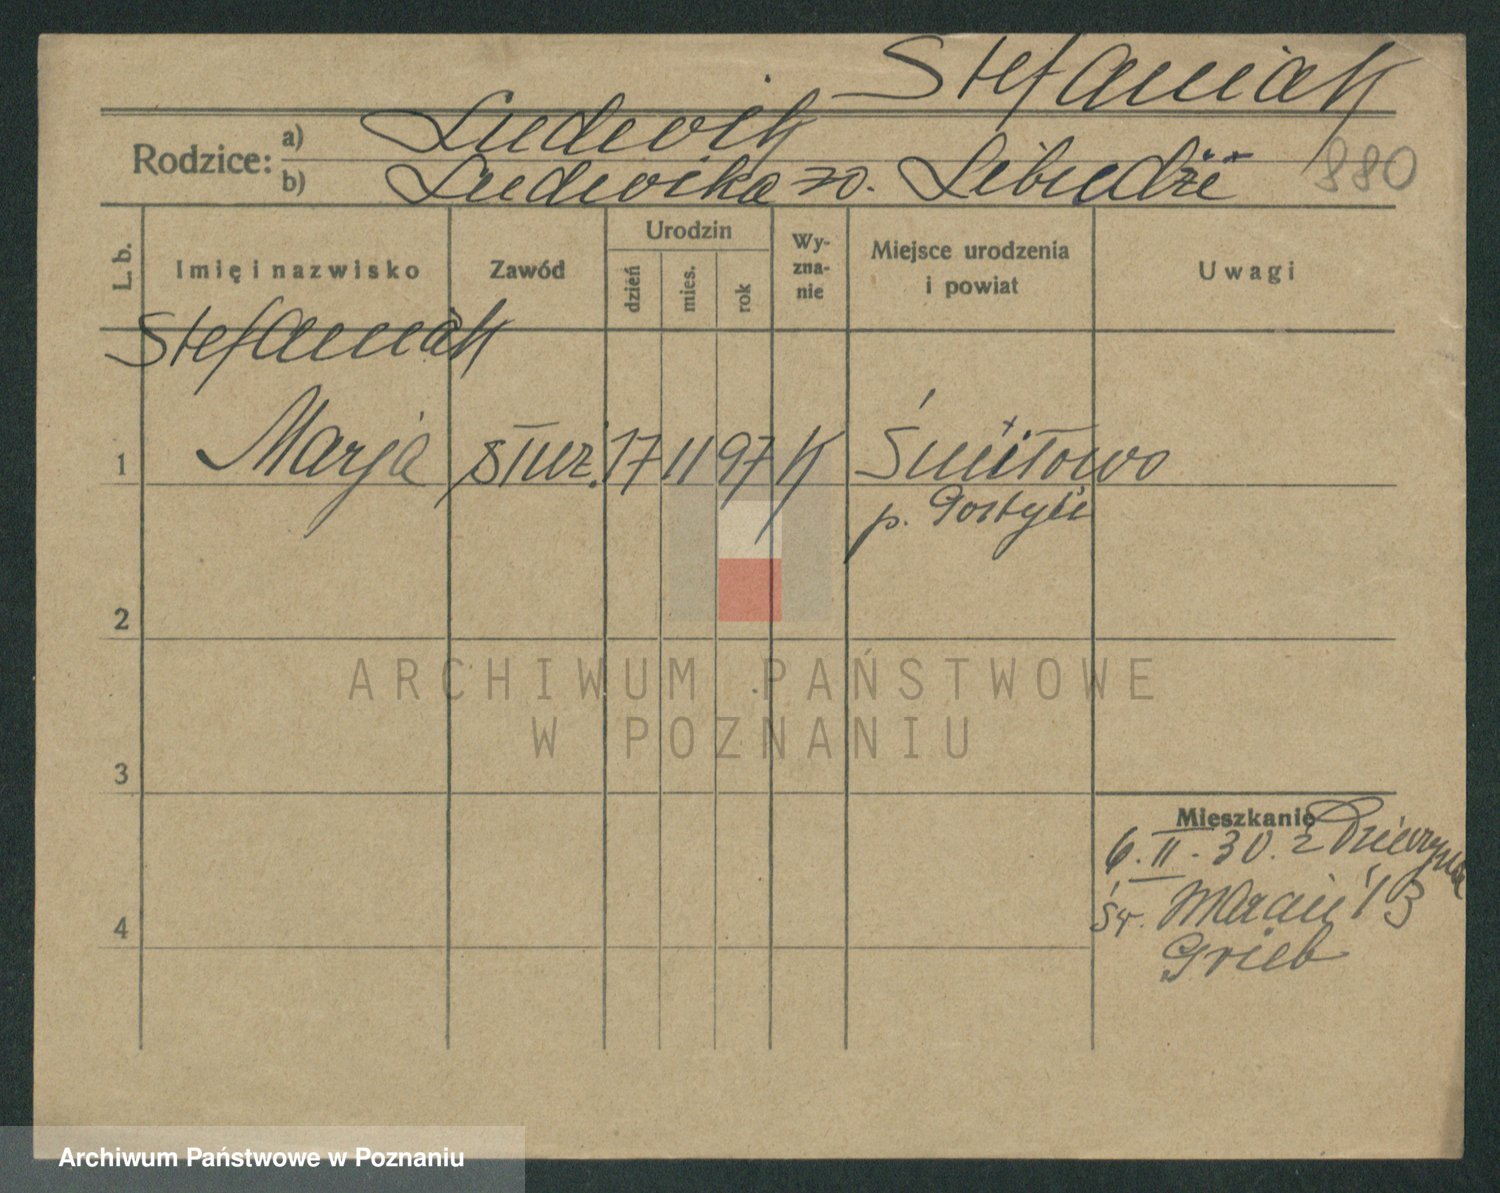 Stefaniak
Rodzice: a) Ludwik
b) Ludwika zd. 880
L. b. Imię i nazwisko Zawód Urodzin dzień mies. rok Wyznanie Miejsce urodzenia i powiat Uwagi
Stefaniak
1 Marja służ. 17 11 97 K Śmiłowo
p. Gostyń
2
3
4
Mieszkanie
6.II.30. z
Św. Marcin 13
Grieb
ARCHIWUM PAŃSTWOWE
W POZNANIU
Archiwum Państwowe w Poznaniu